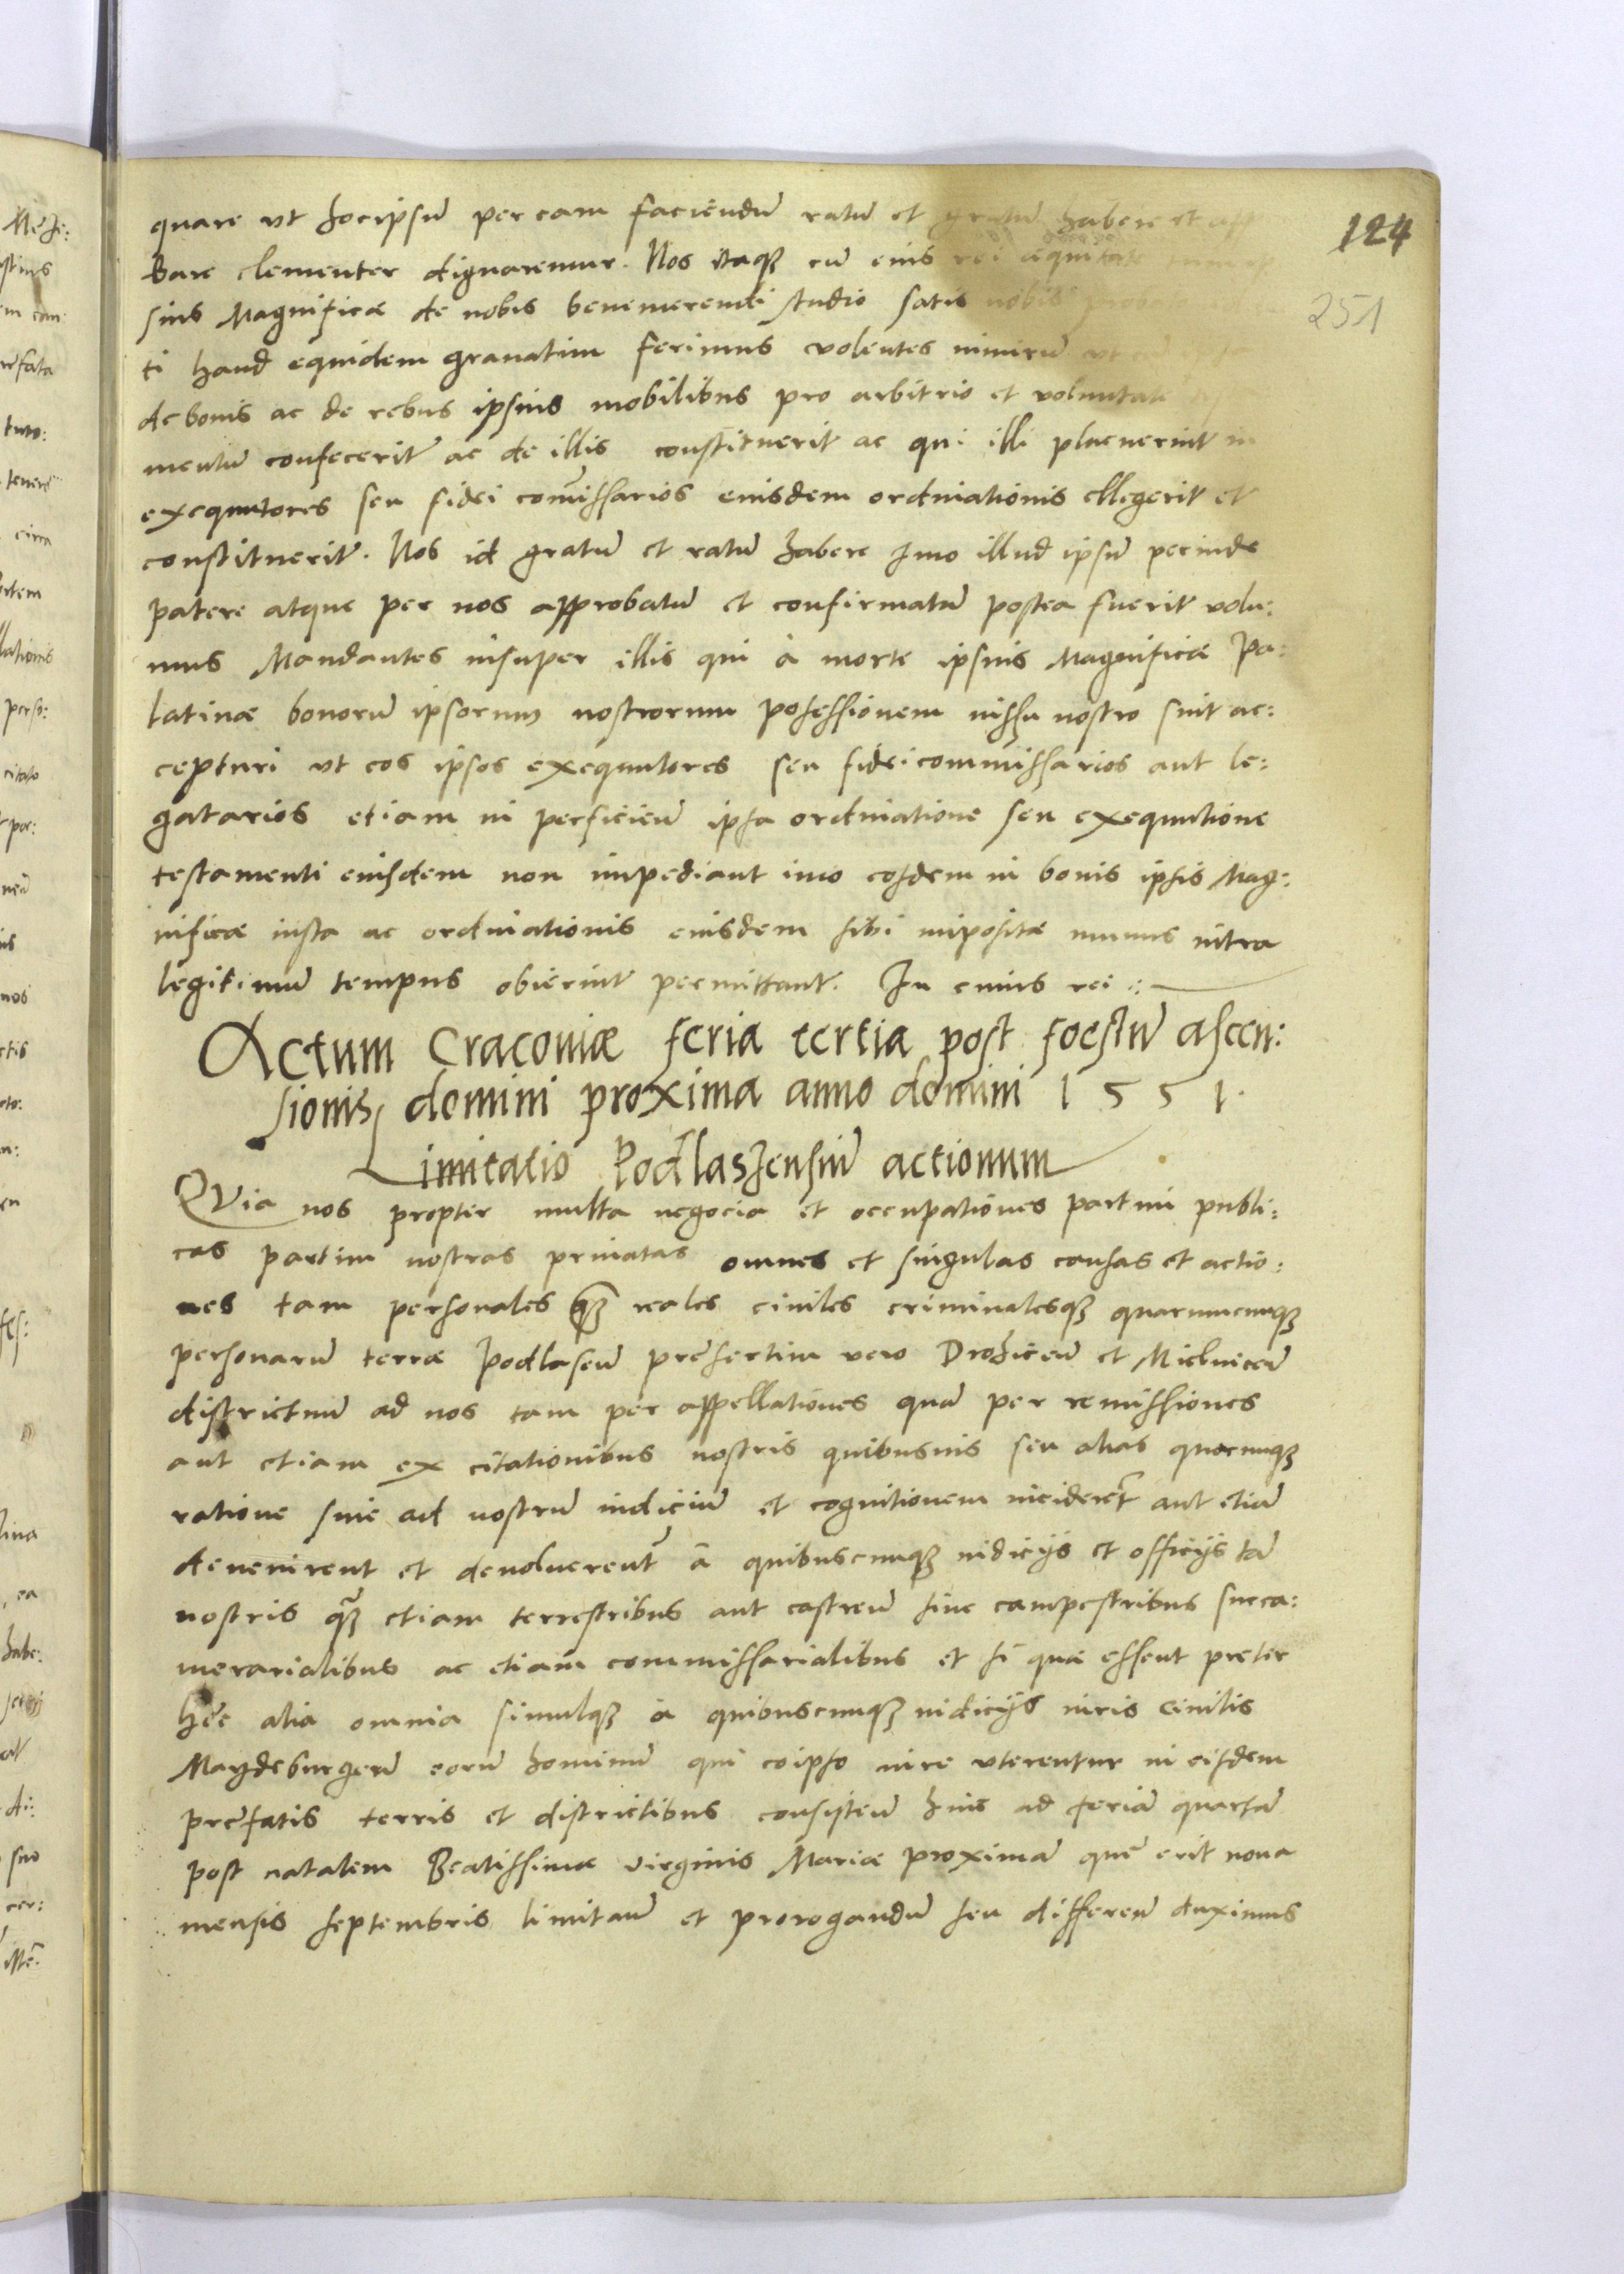 124
251
quare vt hocipsū per eam faciēdū ratū et gratū habere et app
bare clementer dignaremur. Nos itaqȝ cū eius rei æquitate tum ip
sius Magnificæ de nobis benemerendi studio satis nobis
ti haud equidem grauatim ferimus volentes nimirū vt
de bonis ac de rebus ipsius mobilibus pro arbitrio et voluntate
mentū confecerit ac de illis constituerit ac qui illi placuerint in
exequutores seu fidei com̄issarios eiusdem ordinationis ellegerit et
constituerit. Nos id gratū et ratū habere Imo illud ipsū perinde
patere atque per nos approbatū et confirmatū postea fuerit volu:
mus Mandantes insuper illis qui à morte ipsius Magnificæ Pa:
latinæ bonorū ipsorum nostrorum possessionem iussu nostro sint ac:
cepturi vt eos ipsos exequutores seu fideicommissarios aut le:
gatarios etiam in perficieū ipsa ordinatione seu exequutione
testamenti eiusdem non impediant imo eosdem in bonis ipsis Mag:
nificæ iusta ac ordinationis eiusdem sibi impositæ munus intra
legitimū tempus obierint permittant. In cuius rei :
Actum Cracouiæ feria tertia post foestū ascen:
sionis domini proxima anno domini 1551.
Limitatio Podlaszensiū actionum
QVia nos propter multa negocia et occupationes partim publi:
cas partim nostras priuatas omnes et singulas causas et actio:
nes tam personales qȝ reales ciuiles criminalesqȝ quarumcunqȝ
personarū terræ Podlaseū presertim vero Drohiceū et Mielniceū
districtuū ad nos tam per appellationes quā per remissiones
aut etiam ex citationibus nostris quibusuis seu alias quacunqȝ
ratione siue ad nostrū iudiciū et cognitionem inciderēt aut etiā
deuenirent et deuoluerent à quibuscunqȝ iudicijs et officijs tā
nostris qȝ etiam terrestribus aut castreū siue campestribus succa:
merarialibus ac etiam commissarialibus et si quæ essent preter
hęc alia omnia simulqȝ à quibuscunqȝ iudicijs iuris ciuilis
Magdeburgeū eorū hominū qui eoipso iure vterentur in eisdem
prefatis terris et districtibus consisteū huic ad feriā quartā
post natalem Beatissimæ virginis Mariæ proximā quę erit nona
mensis septembris limitauū et prorogandū seu differeū duximus